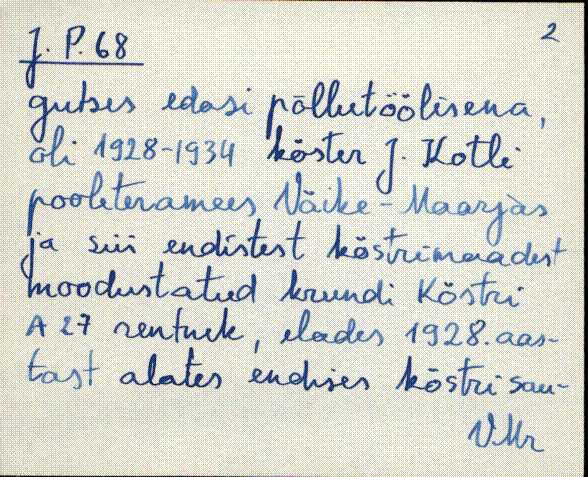 J. P. 68
2
gutses edasi põllutöölisena,
oli 1928-1934 köster J. Kotli
pooleteramees Väike-Maarjas
ja siis endistest köstrimaadest
moodustatud krundi Köstri
A 27 rentnik, elades 1928. aas-
tast alates endises köstri sau-
VMr